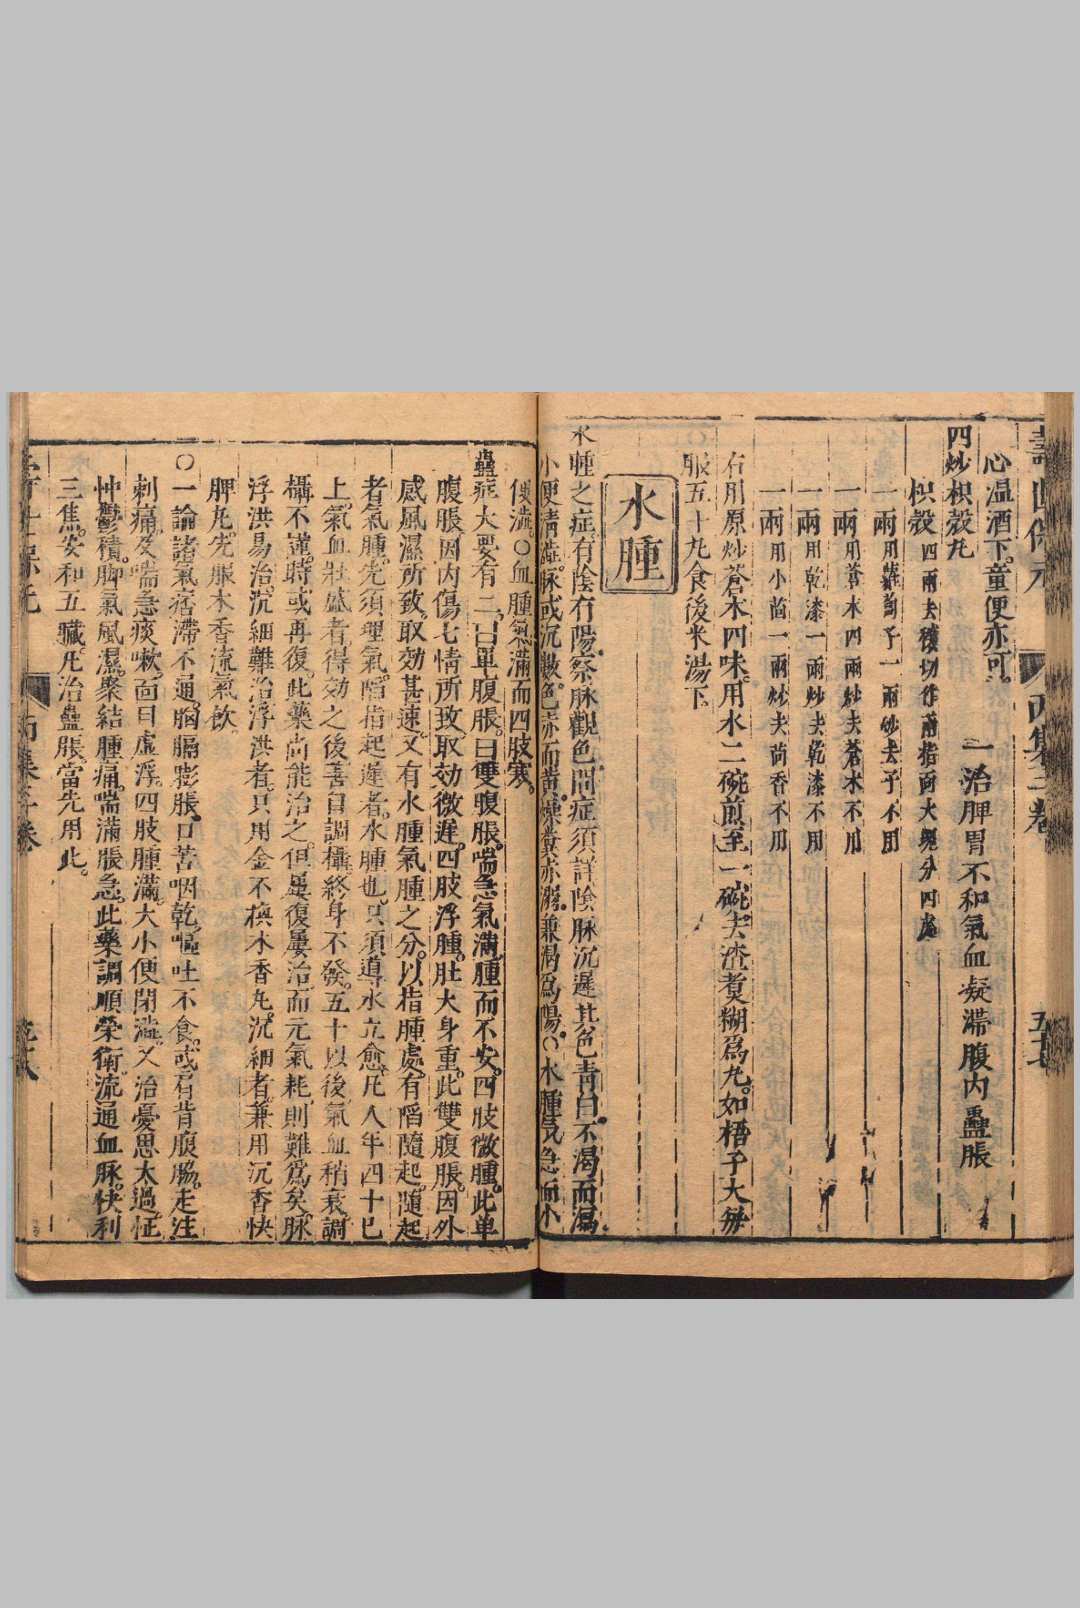 壽世保元 丙集三卷 五十七
心温酒下。童便亦可。
四炒枳殼丸 一治脾胃不和氣血凝滯腹內蠱脹
枳殼四兩去穰切作兩指面大塊分四處
一兩用蘿蔔子一兩炒去子不用
一兩用蒼朮四兩炒去蒼朮不用
一兩用乾漆一兩炒去乾漆不用
一兩用小茴一兩炒去茴香不用
右用原炒蒼朮四味。用水二碗煎至一碗去渣煑糊爲丸。如梧子大每
服五十丸食後米湯下。
水腫
水腫之症有陰有陽。察脉觀色。問症須詳。陰脉沉遲其色青白。不渴而瀉
小便清澁。脉或沉數。色赤而黄。燥糞赤溺。兼渴爲陽。○水腫氣急而小
便澁。○血腫氣滿而四肢寒。
蠱症大要有二。曰單腹脹。曰雙腹脹。喘急氣滿。腫而不安。四肢微腫。此單
腹脹。因内傷七情所致。取効微遲。四肢浮腫。肚大身重。此雙腹脹。因外
感風濕所致。取効甚速。又有水腫氣腫之分。以指腫處。有䧟隨起。隨起
者氣腫。先須理氣。䧟指起遲者。水腫也。只須導水立愈。凡人年四十已
上氣血壯盛者得効之後善自調攝。終身不發。五十以後氣血稍衰。調
攝不謹。時或再復。此藥尚能治之。但屢復屢治。而元氣耗。則難爲矣。脉
浮洪易治。沉細難治。浮洪者。只用金不換木香丸。沉細者。兼用沉香快
脾丸。先服木香流氣飲
○一論諸氣痞滯不通。胸膈膨脹。口苦咽乾。嘔吐不食。或肩背腹脇。走注
刺痛。及喘急痰嗽。面目虛浮。四肢腫滿。大小便閉澁。又治憂思太過。怔
忡鬱積。脚氣風濕。聚結腫痛。喘滿脹急。此藥調順榮衛。流通血脉。快利
三焦。安和五臟。凡治蠱脹。當先用此。
壽世保元 丙集三卷